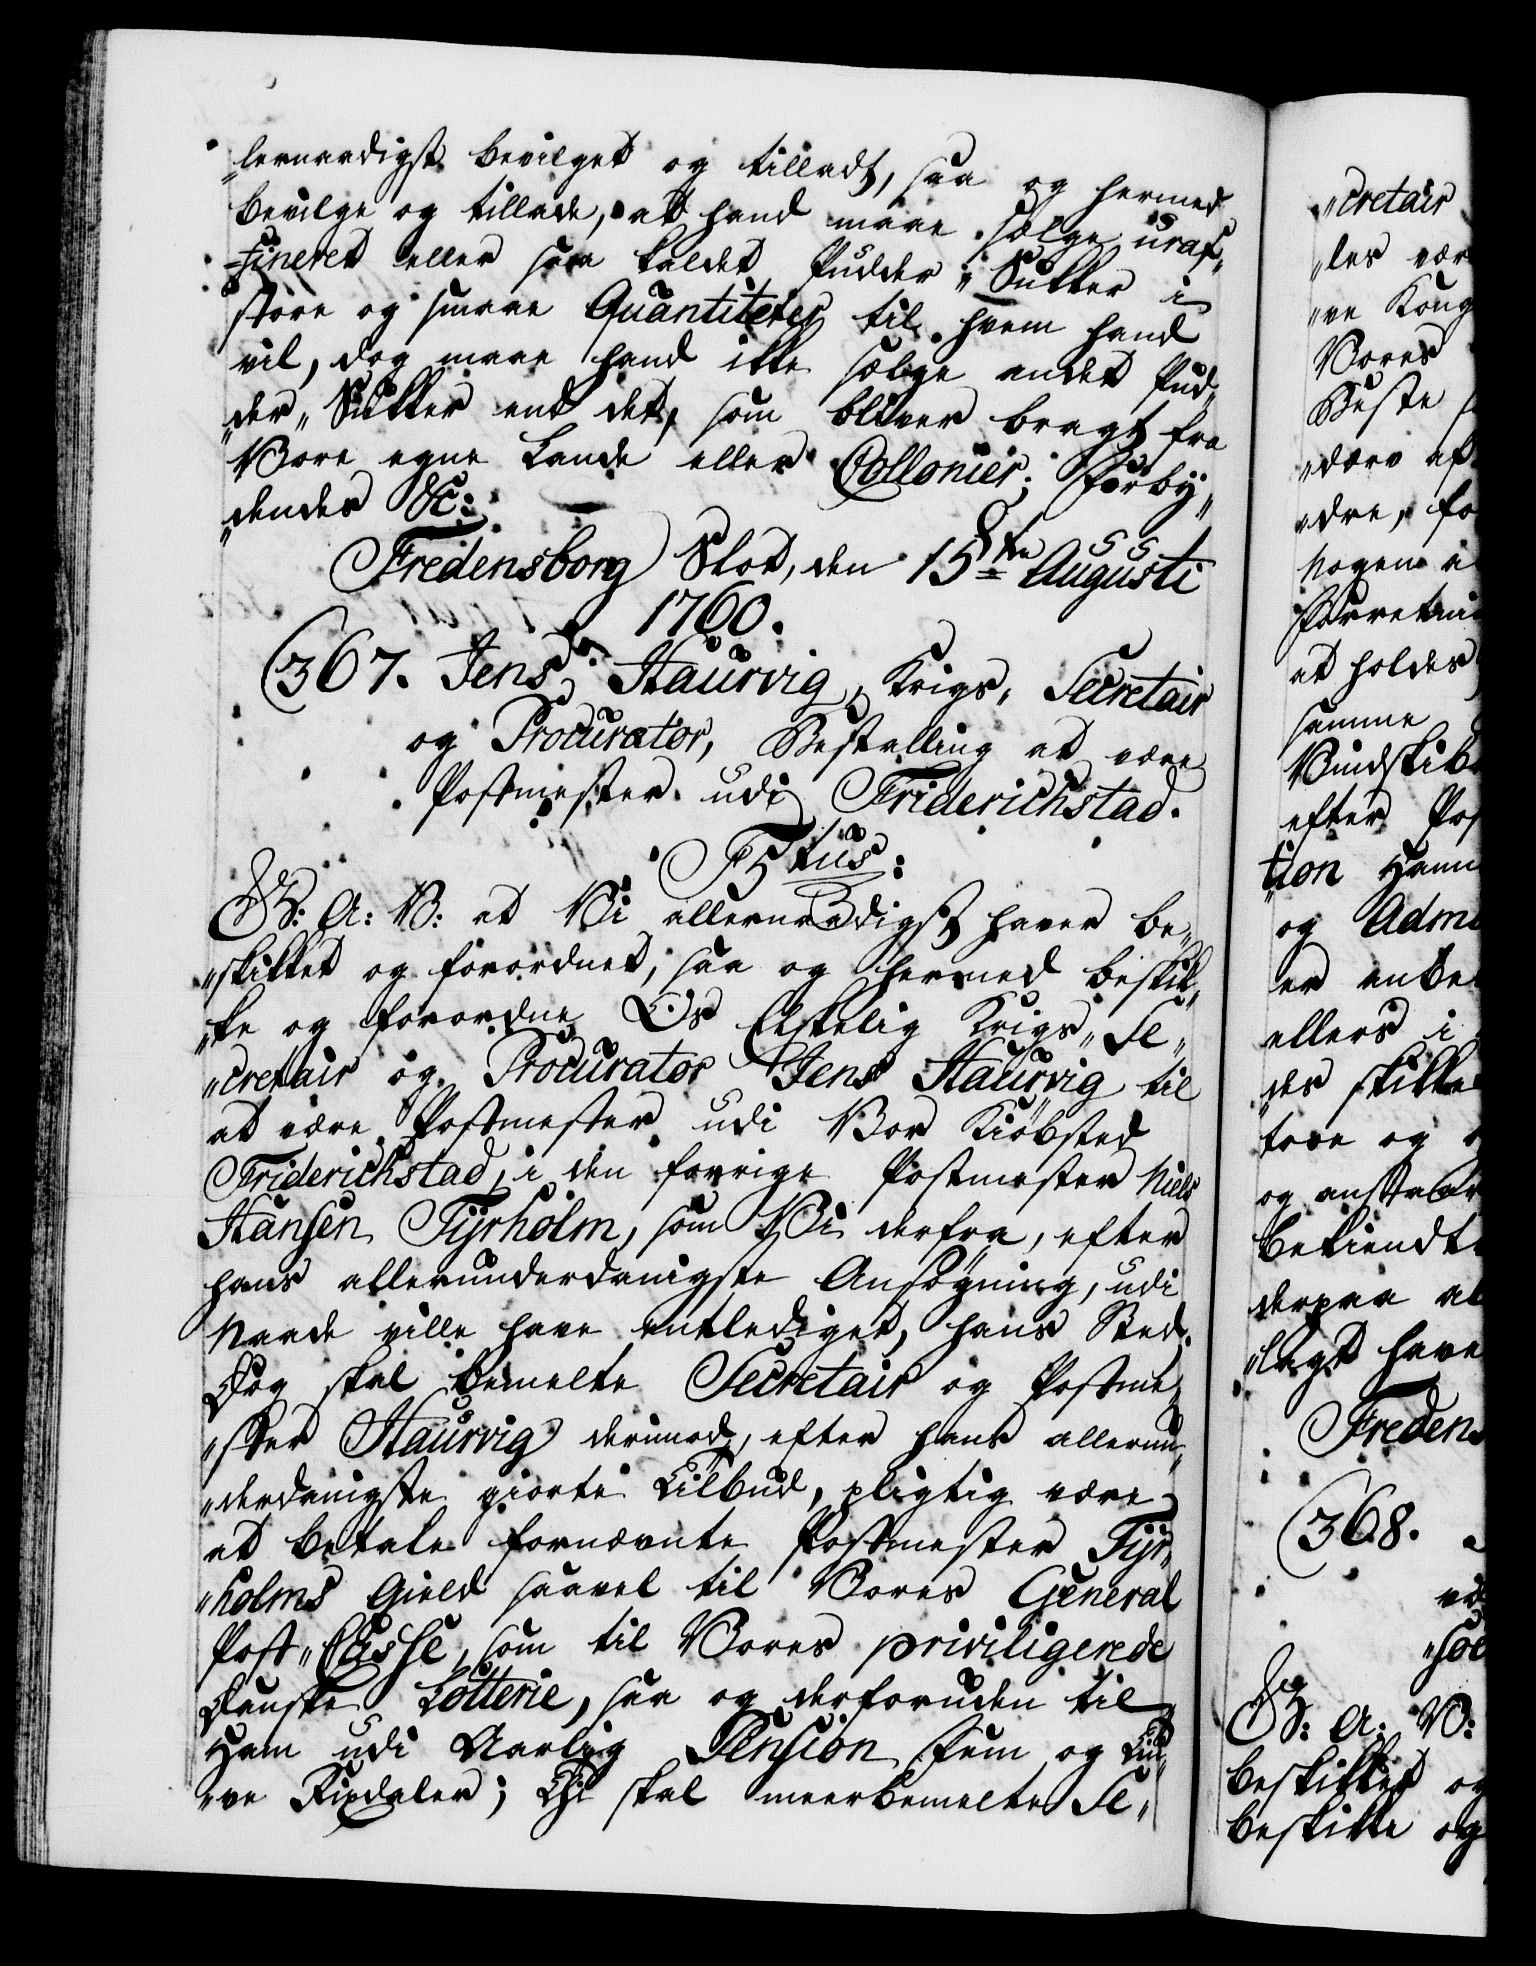 „lernaadigst bevilget og tilladt, saa og hermed
bevilge og tillade, at hand maae sælge uraf„
„fineret eller saa kaldet Pudder„Sukker i
store og smaae Quantiteter til hvem hand
vil, dog maae hand ikke sælge andet Pud„
„der„Sukker end det, som bliver bragt fra
Vore egne Lande eller Collonier; Forby„
„dendes &c:
Fredensborg Slot, den 15de Augusti
1760.
367. Jens Haurvig, Krigs„Secretair
og Procurator, Bestalling at være
Postmester udi Friderichstad.
F5tus:
G: A: V: at Vi allernaadigst haver be„
„skikket og forordnet, saa og hermed beskik„
„ke og forordne Os Elskelig Krigs„Se„
„cretair og Procurator Jens Haurvig til
at være Postmester udi Vor Kiøbsted
Friderichstad, i den forrige Postmester Niels
Hansen Tyrholm, som Vi derfra, efter
hans allerunderdanigste Ansøgning, udi
Naade ville have entlediget, hans Sted.
Dog skal bemelte Secretair og Postme„
„ster Haurvig derimod, efter hans allerun„
„derdanigste giorte Tilbud, pligtig være
at betale fornævnte Postmester Tyr„
„holms Gield saavel til Vores General
Post„Casse, som til Vores priviligerede
Danske Lotterie, saa og derforuden til
Ham udi Aarlig Pension Fem og Ty„
„ve Rixdaler; Thi skal meerbemelte Se„
„cretair
„les vær
„ve Kong
Vores
Beste
„dærv af
„dre, fo
Nogen i
Forretni
at holdes
samme
Vindskib
efter Pos
tion Ham
og Admi
er anbe
ellers i
der skikke
tere og
og ansta
bekiendt
derpaa al
„lagt have
Fredens
368.
væ
„sæ
G: A: V:
beskikket og
beskikke og